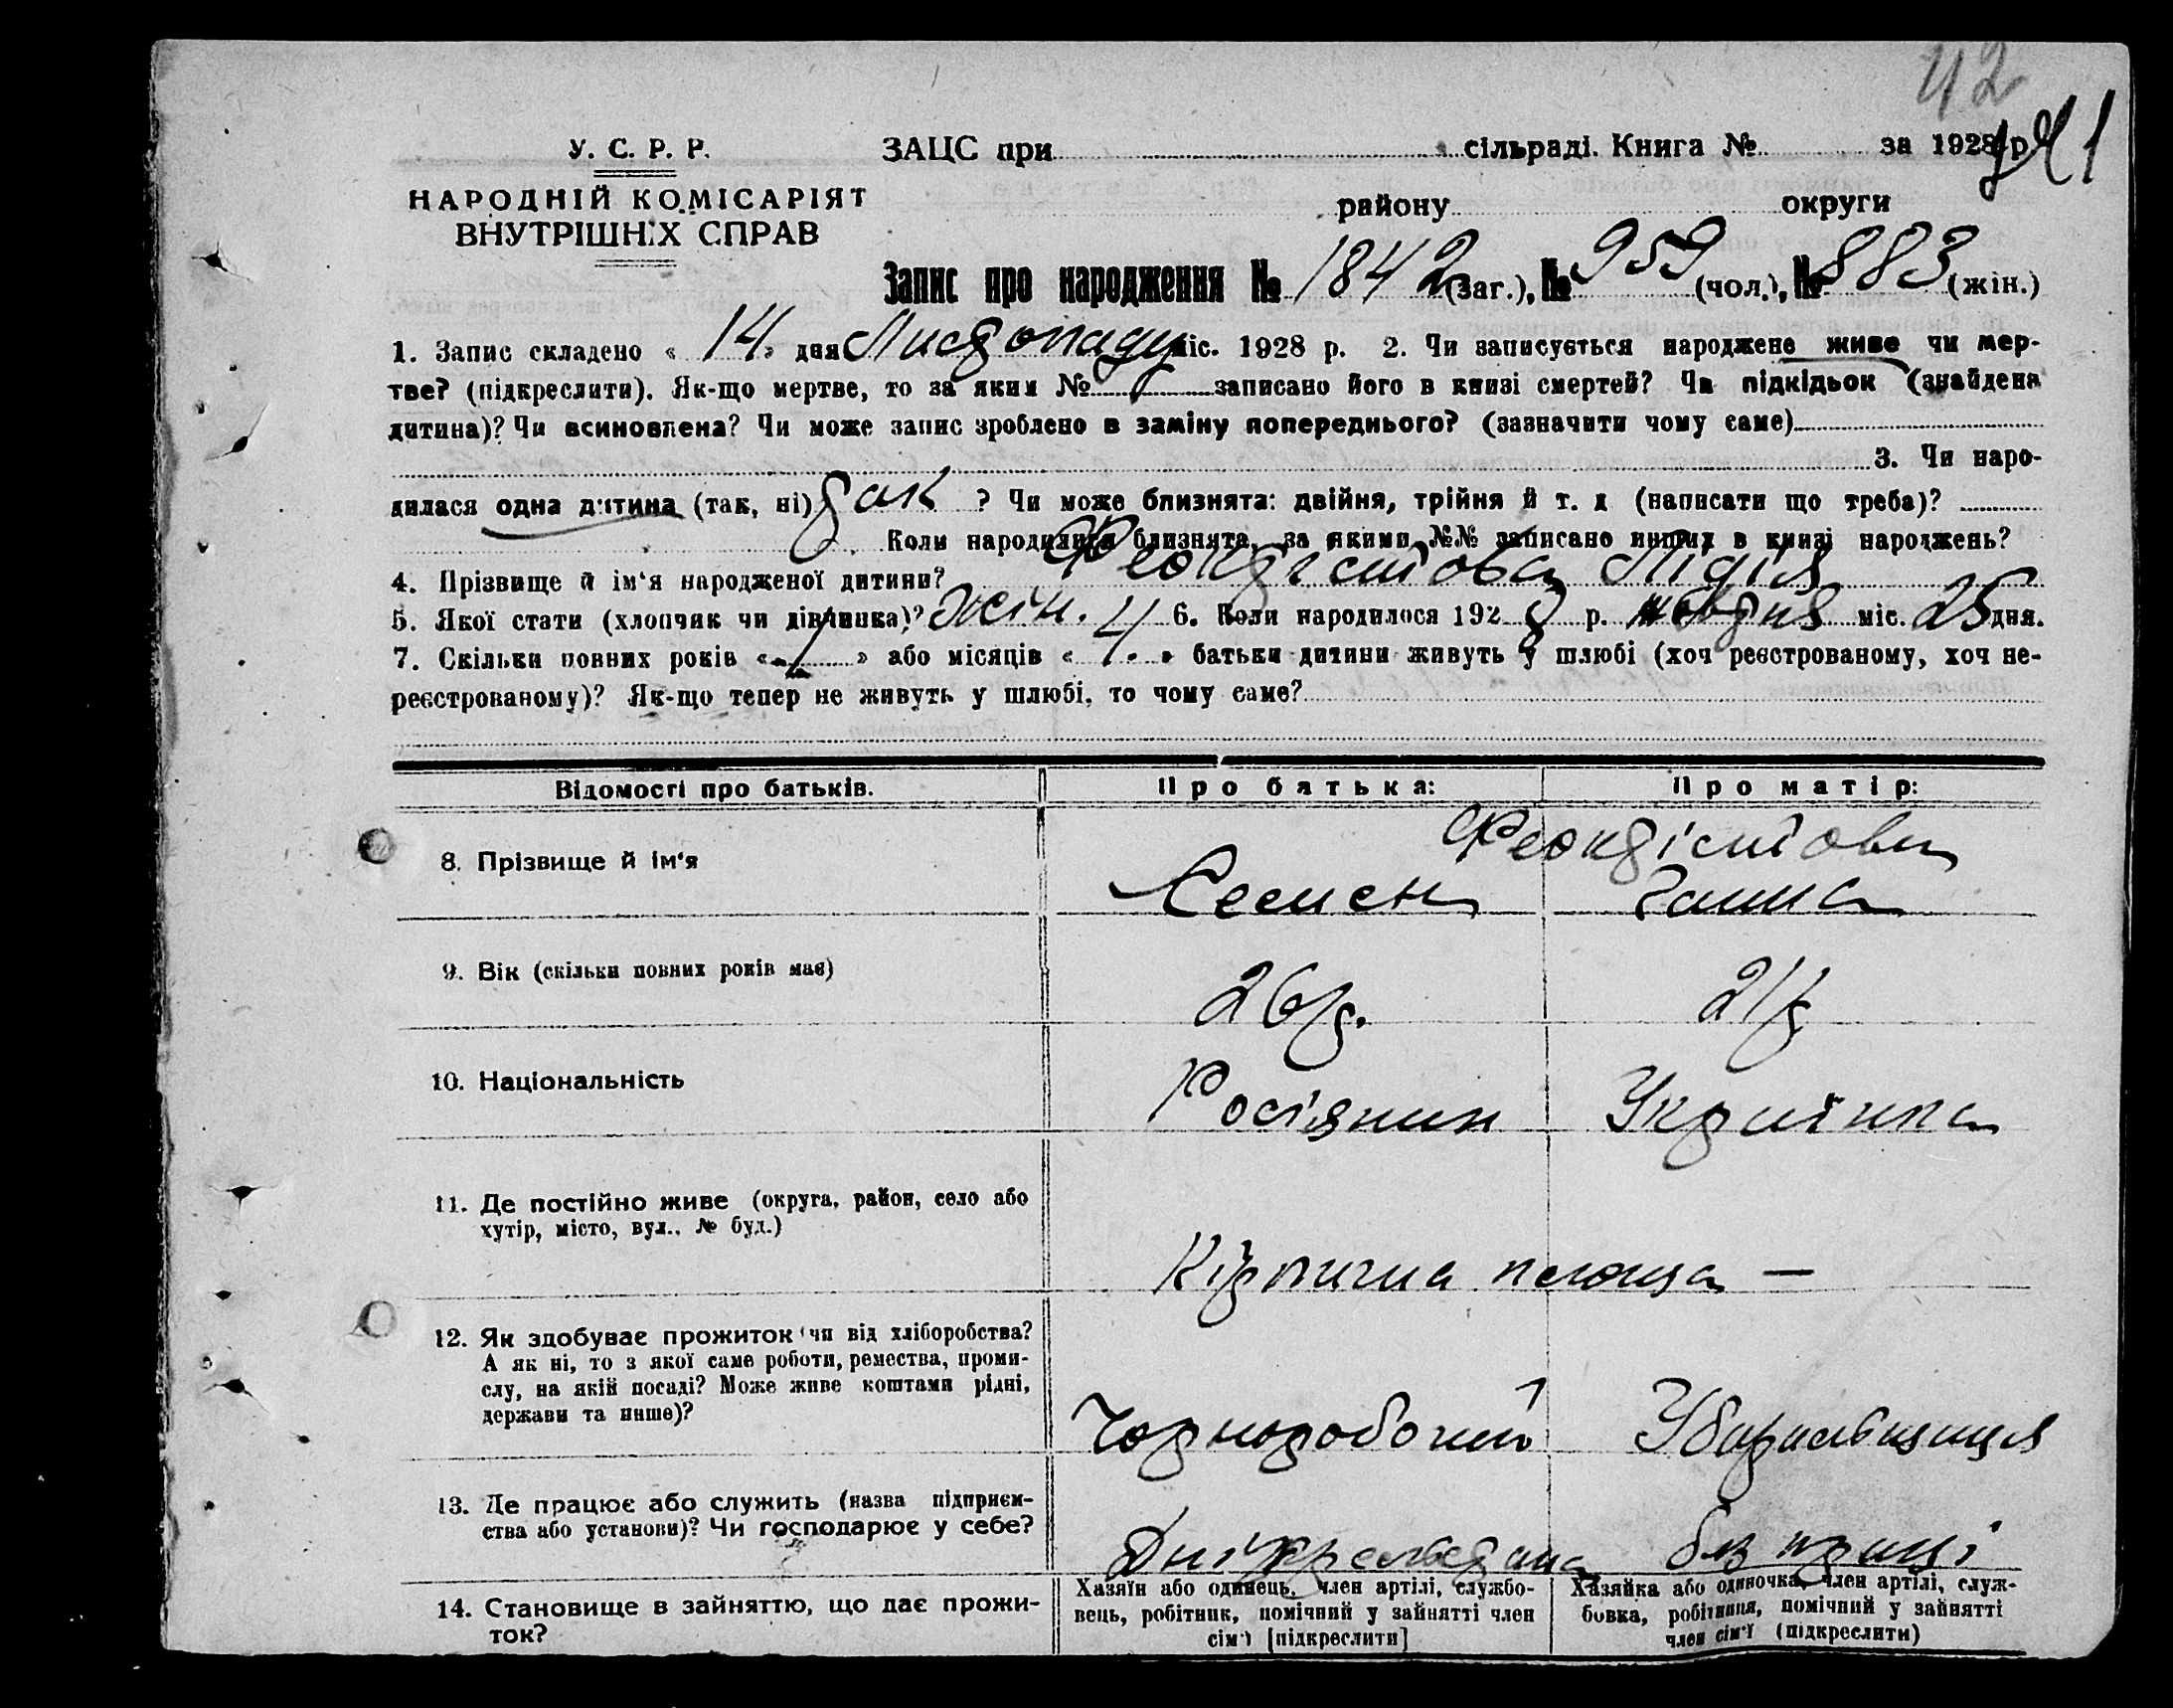 42
41
У. С. Р. Р.
НАРОДНІЙ КОМІСАРІЯТ
ВНУТРІШНІХ СПРАВ
ЗАЦС при сільраді. Книга № за 1928 р.
району округи
Запис про народження № 1842 (заг.), № 959 (чол.), № 883 (жін.)
1. Запис складено « 14 » дня Листопаду міс. 1928 р. 2. Чи записується народжене живе чи мер-
тве? (підкреслити). Як-що мертве, то за яким № записано його в книзі смертей? Чи підкідьок (знайдена
дитина)? Чи всиновлена? Чи може запис зроблено в заміну попереднього? (зазначити чому саме)
3. Чи наро-
дилася одна дитина (так, ні) так ? Чи може близнята: двійня, трійня й т. д (написати що треба)?
Коли народилися близнята, за якими №№ записано инших в книзі народжень?
4. Прізвище й ім'я народженої дитини? Феоктістова Лідія
5. Якої стати (хлопчик чи дівчинка)? жін. 6. Коли народилося 1928 р. жовтня міс. 25 дня.
7. Скільки повних років « » або місяців « » батьки дитини живуть у шлюбі (хоч реєстрованому, хоч не-
реєстрованому)? Як-що тепер не живуть у шлюбі, то чому саме?
Відомості про батьків. Про батька: Про матір:
Феоктістови
8. Прізвище й ім'я Семен Ганна
9. Вік (скільки повних років має) 26 р. 21 р
10. Національність Росіянин Українка
11. Де постійно живе (округа, район, село або
хутір, місто, вул., № буд.)
Кірпична площа —
12. Як здобуває прожиток чи від хліборобства?
А як ні, то з якої саме роботи, ремества, проми-
слу, на якій посаді? Може живе коштами рідні,
держави та инше)?
Чорноробочий
13. Де працює або служить (назва підприєм-
ства або установи)? Чи господарює у себе?
без праці
14. Становище в зайняттю, що дає прожи-
ток?
Хазяїн або одинець, член артілі, службо-
вець, робітник, помічний у зайнятті член
сім'ї [підкреслити]
Хазяйка або одиночка, член артілі, служ-
бовка, робітниця, помічний у зайнятті
член сім'ї (підкреслити)